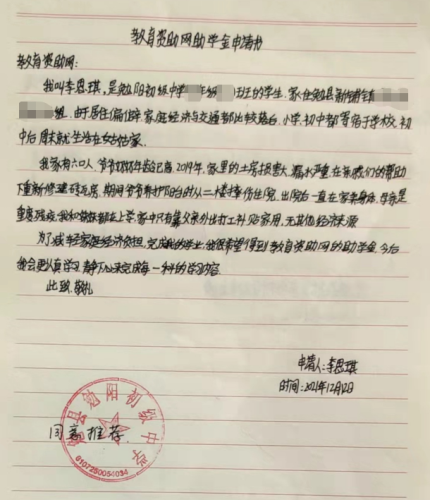 教育资助网助学金申请书
教育资助网:
我叫李思琪,是勉阳初级中学 级 班的学生,家住勉县新铺镇
组,由于居住偏僻家庭经济与交通都比较落后,小学初中都寄宿于学校,初
中后周末就生活在女姑家。
我家有六口人,爷爷奶奶年龄已高,2019年,家里的土房损害大,漏水严重,在亲戚们的帮助
下重新修建砖瓦房,期间爷爷 从二楼摔伤住院,出院后一直在家养身体,母亲是
残疾,我和 上学,家中只有靠父亲外出打工补贴家用,无其他经济来源
为了减轻家庭经济负担,完成我的学业,我很希望得到教育资助网的助学金,今后
我会更认真学习,静下心来完成每一科的学习内容。
此致,敬礼
申请人:李思琪
时间:2021年12月12日
县勉阳初级中学
同意推荐
6107250054034